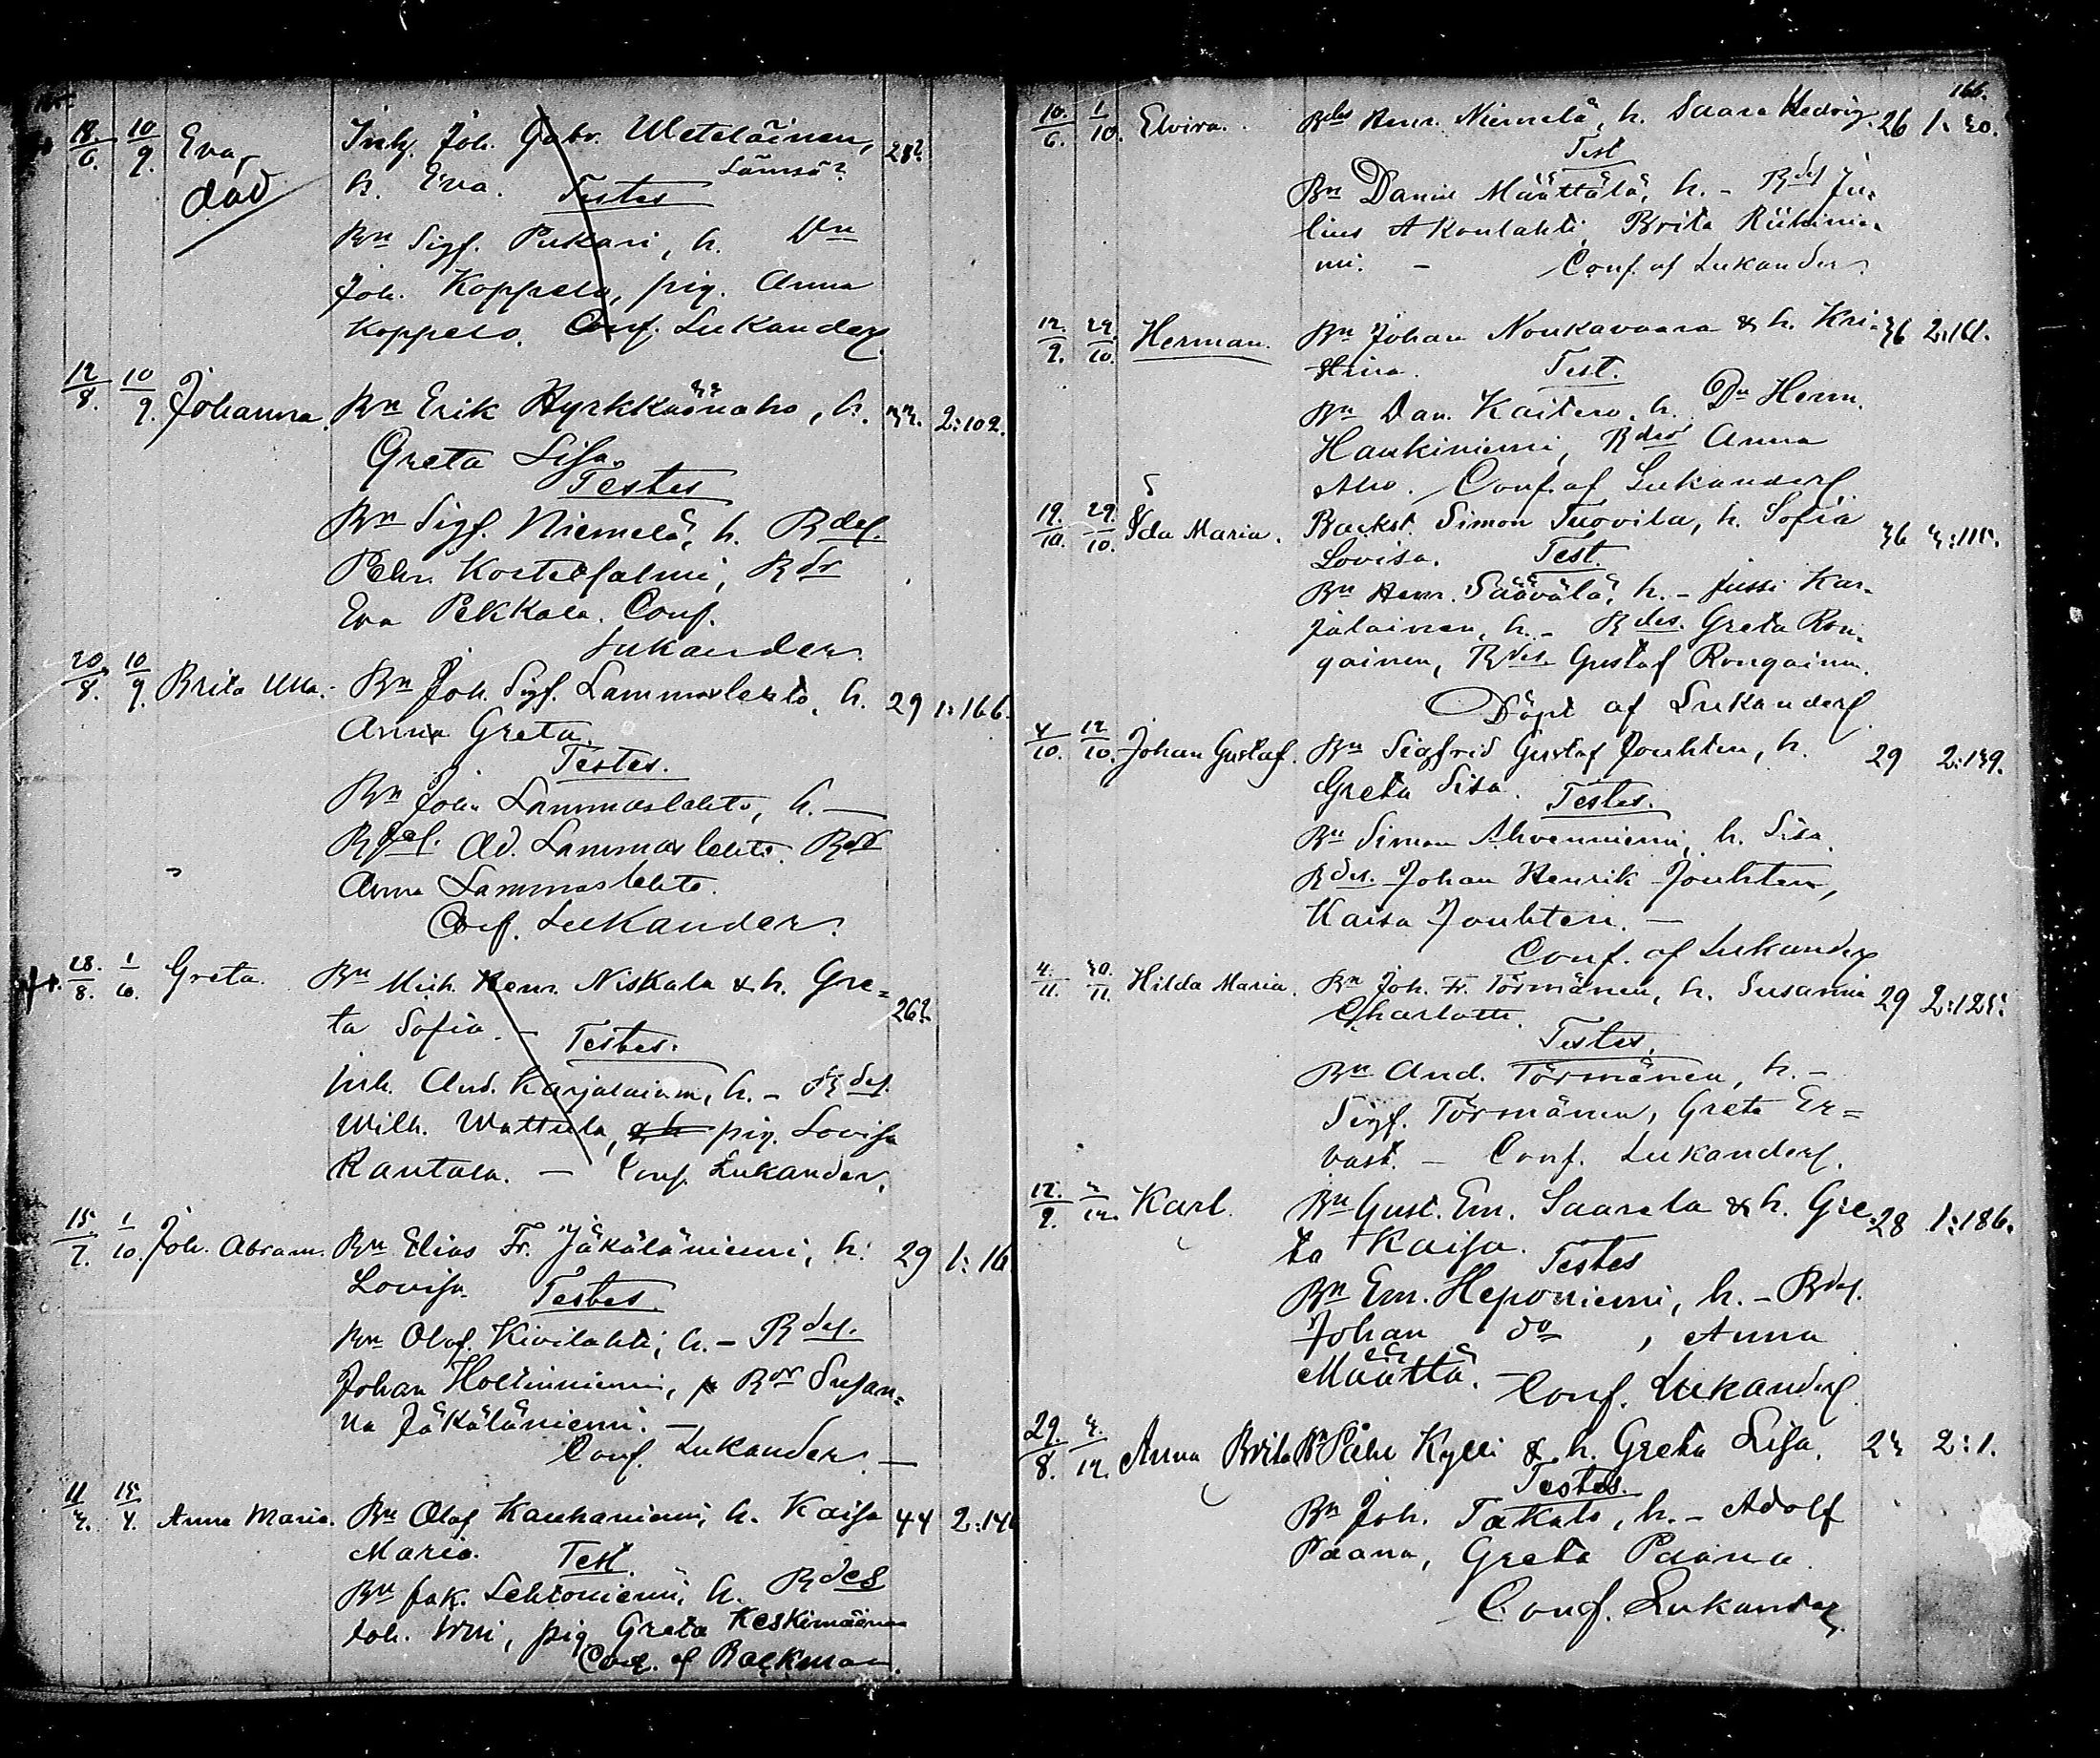 18/6. 10/9. Eva, Inh. Joh. Gabr. Weteläinen, 28?
död h. Eva. Testes Lämsä?
Bn Sigf. Pukari, h. Dn
Joh. Koppelo, pig. Anna
Koppelo. Conf. Lukander.
12/8. 10/9. Johanna. Bn Erik Hyrkkäönaho, h. 32. 2:102.
Greta Lisa.
Testes
Bn Sigf. Niemelä, h. Rdes.
Pehr Kostetsalmi, Rdr
Eva Pekkala. Conf.
Lukander.
20/8. 10/9. Brita Ulla. Bn Joh. Sigf. Lammaslehto, h. 29 1:166.
Anna Greta.
Testes.
Bn Joh. Lammaslehto, h. —
Rdes. Ad. Lammaslehto. Rdr
Anna Lammaslehto.
Conf. Lukander.
28./8. 1/10. Greta. Bn Mich. Henr. Niskala & h. Gre=
26?
ta Sofia. — Testes.
Inh. And. Karjalainen, h. - Rdes.
Wilh. Wattula, & h pig. Lovisa
Rantala. — Conf. Lukander.
15/7. 1/10. Joh. Abram. Bn Elias Fr. Jäkäläniemi, h. 29 1:16
Lovisa Testes.
Bn Olof. Kivilahti, h. - Rdes.
Johan Hoikinniemi, Rdr Susan=
na Jäkäläniemi. —
Conf. Lukander. —
11/3. 15/4. Anna Maria. Bn Olof Kauhaniemi, h. Kaisa 44 2:146
Maria. Test.
Bn Jak. Lehtoniemi, h. Rdes
Joh. Irni, pig Greta Keskimäinen
Conf. af Backman.
166.
10./6. 1/10. Elvira. Rdes Henr. Niemelä, h. Saara Hedvig. 26 1:30.
Test
Bn Daniel Määttälä, h. - Rdes Ju-
lius Akonlahti, Brita Riihinie-
mi. - Conf. af Lukander.
12./9. 29./10. Herman. Bn Johan Noukavaara & h. Kri- 36 2:161.
stina. Test.
Bn Dan. Kaitero, h. Dn Herm.
Haukiniemi, Rdr Anna
Aho. Conf. af Lukander.
19./10. 29./10. Ida Maria. Backst. Simon Tuovila, h. Sofia 36 3:115.
Lovisa. Test.
Bn Henr. Säävälä, h. - Jussi Kar-
jalainen, h. - Rdes. Greta Ron-
gainen, Rdes Gustaf Rongainen.
Döpt af Lukander.
4/10. 12/10. Johan Gustaf. Bn Sigfrid Gustaf Jouhten, h. 29 2:139.
Greta Lisa. Testes.
Bn Simon Ahvenniemi, h. Lisa.
Rdes. Johan Henrik Jouhten,
Kaisa Jouhten. —
Conf. af Lukander
4./11. 30./11. Hilda Maria. Bn Joh. Fr. Törmänen, h. Susanna 29 2:125.
Charlotta.
Testes.
Bn And. Törmänen, h. -
Sigf. Törmänen, Greta Er=
vast. - Conf. Lukander.
12./9. 3/12. Karl. Bn Gust. Em. Saarela & h. Gre- 28 1:186.
ta Kaisa. Testes
Bn Em. Heponiemi, h. - Rdes.
Johan do , Anna
Määttä. - Conf. Lukander.
29./8. 3./12. Anna Brita Bn Pehr Kylli & h. Greta Lisa. 23 2:1.
Testes.
Bn Joh. Takalo, h. - Adolf
Paana, Greta Paana.
Conf. Lukander.